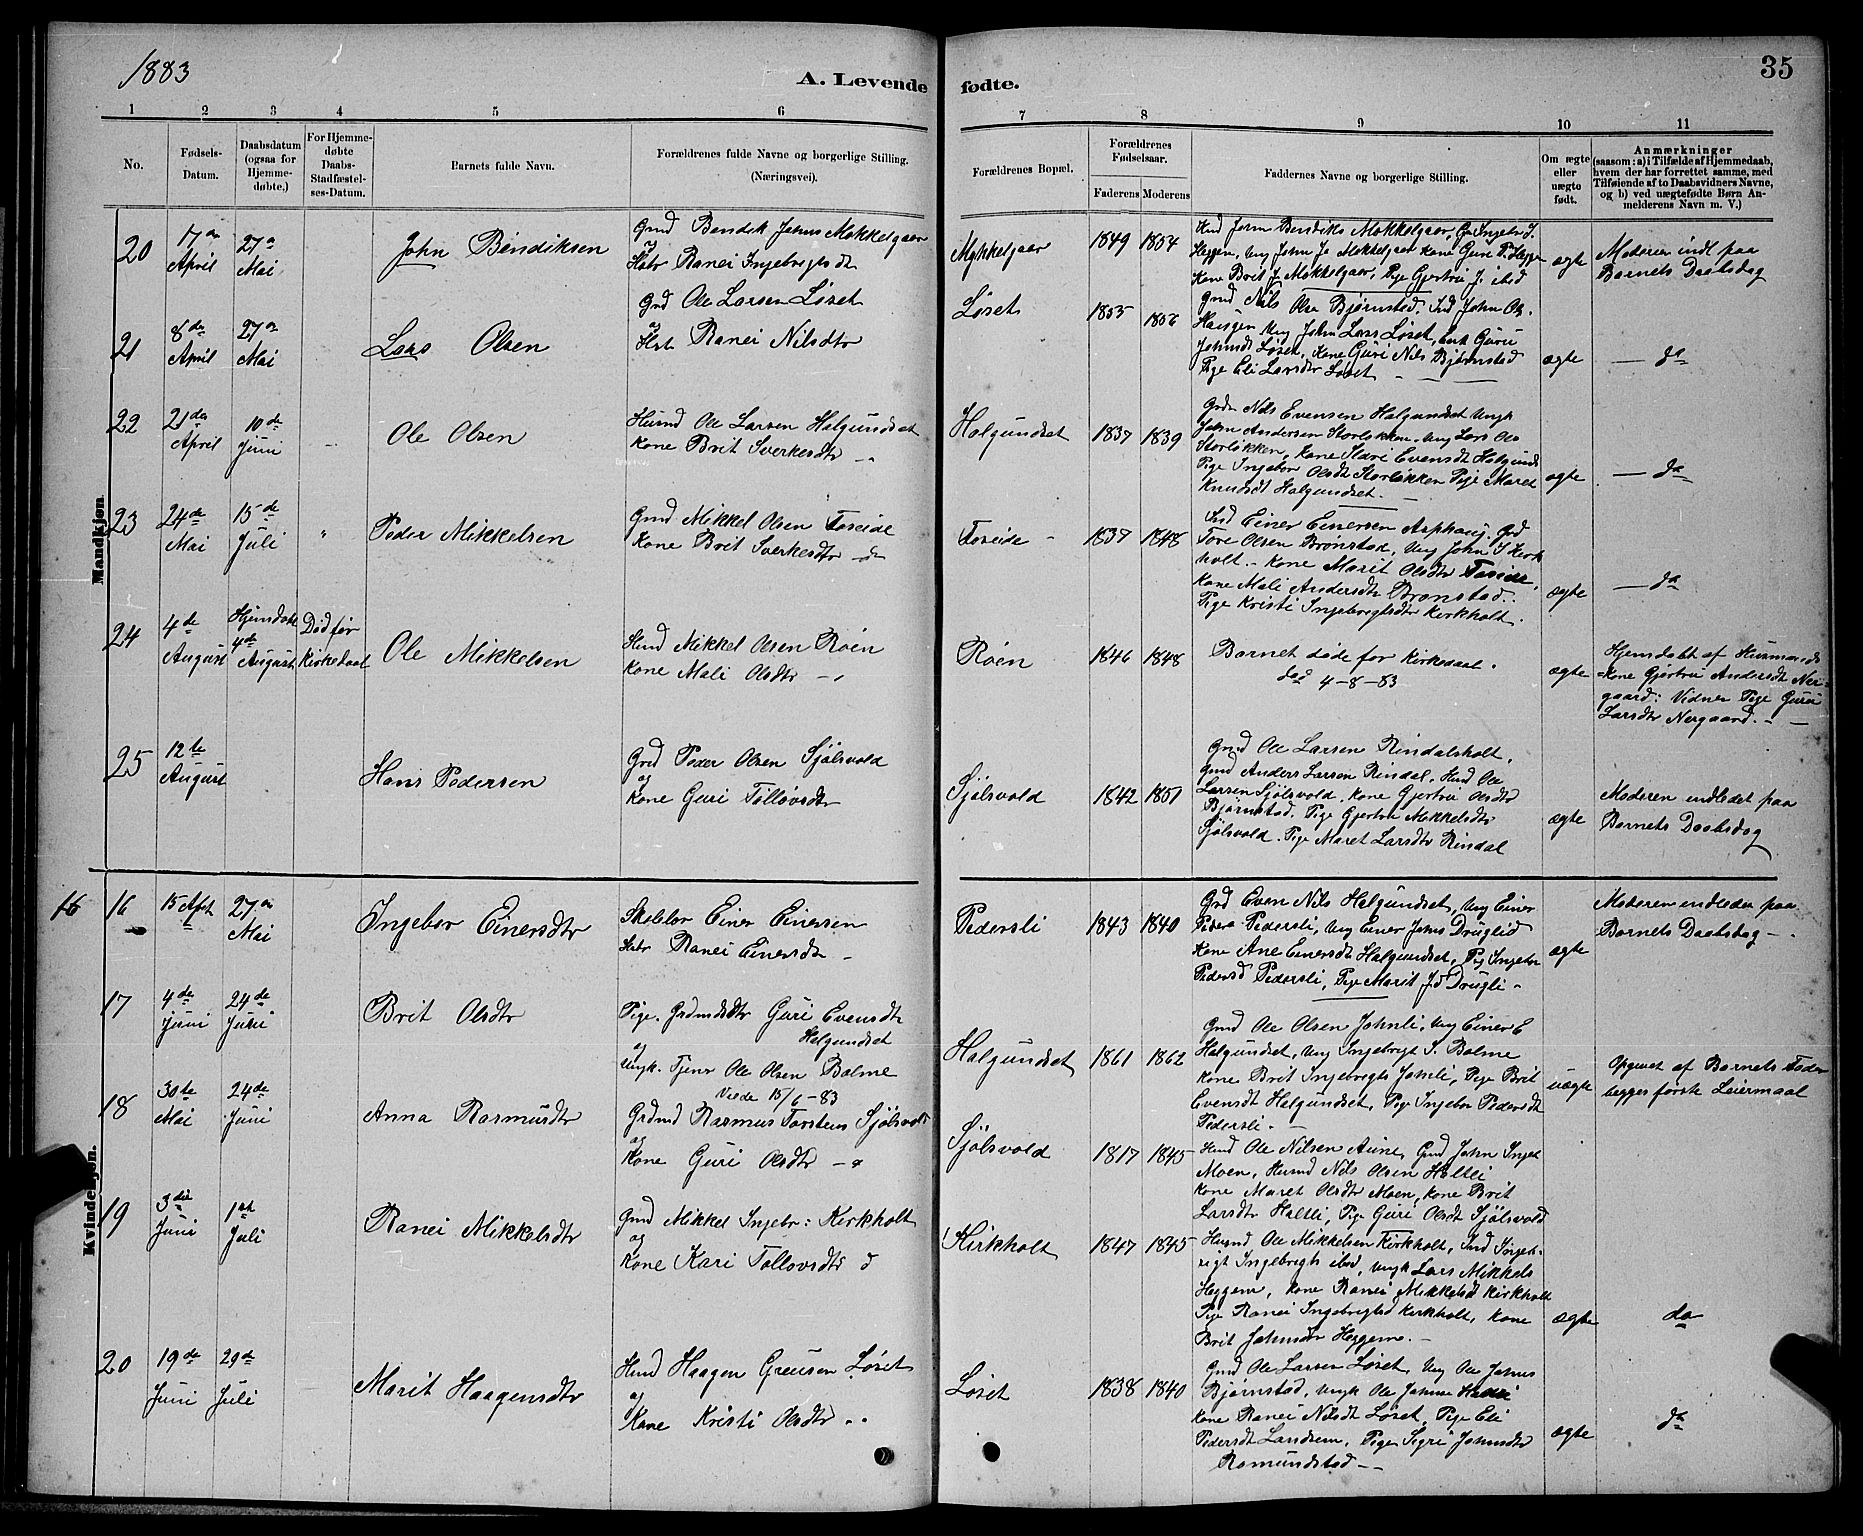 1883
A. Levende fødte.
35
1 2 3 4 5 6 7 8 9 10 11
No.
Fødsels-
Datum.
Daabsdatum
(ogsaa for
Hjemme-
døbte,)
For Hjemme-
døbte
Daabs-
Stadfæstel-
ses-Datum.
Barnets fulde Navn.
Forældrenes fulde Navne og borgerlige Stilling.
(Næringsvei).
Forældrenes Bopæl.
Forældrenes
Fødselsaar.
Faderens Moderens
Faddernes Navne og borgerlige Stilling.
Om ægte
eller
uægte
født.
Anmærkninger
(saasom: a) i Tilfælde af Hjemmedaab,
hvem der har forrettet samme, med
Tilføiende af to Daabsvidners Navne,
og b) ved uægtefødte Børn An-
melderens Navn m. V.)
Mandkjøn.
20
17
April
27
Mai
John Bendiksen
Gmd Bendik Johns Mokkelgaar
og
Ranei Ingebrigtsdt
Mykkelgaar
1849 1854
ægte
Moderen indl paa
Barnets Daabsdag
21
8de
April
27
Mai
Lars Olsen
Grd Ole Larsen Løset
og
Ranei Nilsdtr
Løset
1855 1856
Gmd Nils Olsn Bjørnstad, Ind John Ols.
Haugen Ung John Lars Løset, Guru
Johnsdt Løset, Kone Guri Nils Bjørnstad
Pige Eli Larsdtr Løset
ægte
— da
22
21de
April
10de
Juni
Ole Olsen
Husmd Ole Larsen Halgundset
Kone Brit Sverkesdtr
Halgundset
1837 1839
Nils Evensen Halgundset Ungk
John Andersen Storløkken, Ung Lars Ols
Storløkken, Kone Evensdt Halgunds
Pige Ingebor Olsdt Storløkken Pige Maret
Knudsdt Halgundset.
ægte
— da
23
24de
Mai
15de
Juli
Peder Mikkelsen
Gmd Mikkel Olsen Foseide
Kone Brit Sverkesdtr do
Foseide
1837 1848
Ind Einer Einersen Asphaug, Grd
Tore Olsen Brønstad, Ung John I Kirk
holt. Kone Marit Olsdtr Foseide,
Kone Mali Andersdt Brønstad.
Pige Kristi Ingebrigtsdtr Kirkholt.
ægte
— da
24
4de
August
Hjemdøbt
4de
August
Død før
Kirkedaab
Ole Mikkelsen
Husmd Mikkel Olsen Røen
Kone Mali Olsdtr
Røen
1846 1848
Barnet døde før Kirkedaab.
død 4-8-83
ægte
Hjemdøbt af Husmands
Kone Gjertru Andersdt Ner
gaard: Vidner Pige Guru
Larsdtr Nergaard.
25
12te
August
Hans Pedersen
Grd Peder Olsen Sjølsvold
og
Kone Guri Tollovsdtr
Sjølsvold
1842 1851
Gmd Ole Larsen Rindalsholt,
Gmd Anders Larsen Rindal, Husmd Ole
Larsen Sjølsvold, Kone Gjertru Olsdtr
Bjørnstad. Pige Gjertru Mikkelsdtr
Sjølsvold. Pige Maret Larsdtr Rindal
ægte
Moderen indledet paa
Barnets Daabsdag
Kvindekjøn.
16
16
15 April
27
Mai
Ingebor Einersdtr
Einer Einersen
Ranei Einersdtr
Pedersli
1843 1840
Grd Even Nils Halgundset, Ung Einer
Peders Pedersli, Ung Einer Johns Druglid
Kone Ane Einersdt Halgundset, Pig Ingebor
Pedersd Pedersli, Pige Marit J.d Drugli
ægte
Moderen indledet paa
Barnets Daabsdag
17
4de
Juni
24de
Juni
Brit Olsdtr
Pige. Grdmdsdtr Guri Evensdtr
Halgundset
og
Ungk. Tjener Ole Olsen Bolme
Viede 15/6-83
Halgundset
1861 1862
Gmd Ole Olsen Johnli, Ung Einer E
Halgundset, Ung Ingebrigt S. Bolme
Kone Brit Ingebrigts Johnli, Pige Brit
Evensdt Halgundset, Pige Ingebor Pedersdt
Pedersli.
uægte
Opgivet af Barnets Fader
begges første Leiermaal
18
30te
Mai
24de
Juni
Anna Rasmusdtr
Grdmd Rasmus Torstens Sjølsvold
og
Kone Guri Olsdtr
Sjølsvold
1817 1845
Husmd Ole Nilsen Aune, Gmd John Ingebr
Moen, Husmd Nils Olsen Haltli
Kone Maret Olsdtr Moen, Kone Brit
Larsdtr Haltli, Pige Guri Olsdt Sjølsvold
19
3die
Juni
1st
Juli
Ranei Mikkelsdtr
Gmd Mikkel Ingebr: Kirkholt
og
Kone Kari Tollovsdtr
Kirkholt
1847 1845
Husmd Ole Mikkelsen Kirkholt, Ind Ingeb-
rigt Ingebrigts ibid, Ungk Lars Mikkels
Heggem, Kone Ranei Mikkelsd Kirkholt
Pige Ranei Ingebrigtsd Kirkholt, Kone
Brit Johnsdtr Heggem.
ægte
da
20
19de
Juni
29de
Juli
Marit Haagensdtr
Husmd Haagen Løset
og
Kone Kristi Olsdtr
Løset
1838 1840
Gmd Ole Larsen Løset, Ung Ole Johns
Bjørnstad, Ungk Ole Johnsn
Kone Ranei Nilsdt Løset, Pige Eli
Pedersdt Landsem, Pige Sigri Johnsdtr
Romundstad
ægte
da